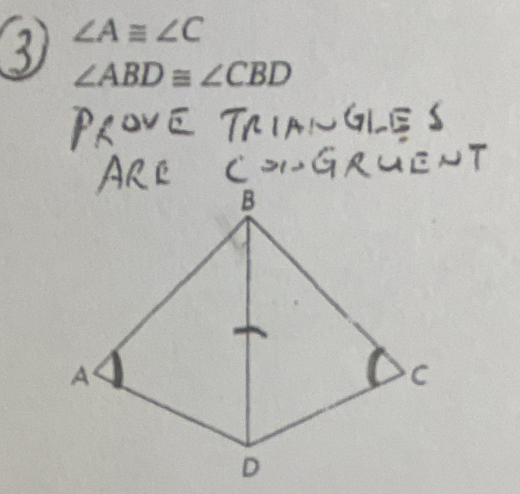 ③ ∠A ≅ ∠C
∠ABD ≅ ∠CBD
PROVE TRIANGLES
ARE CONGRUENT
B
A
C
D